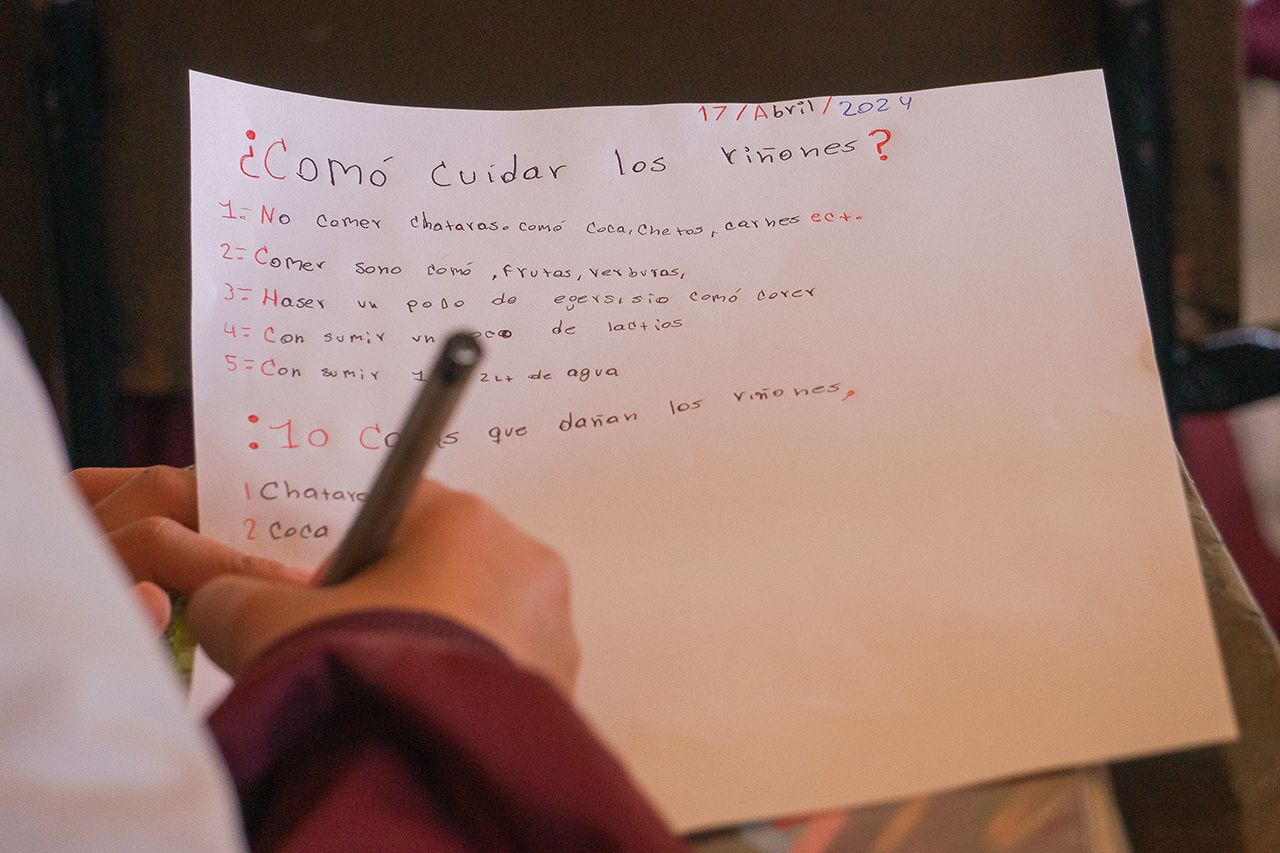 17/Abril/2024
¿Comó cuidar los riñones?
1= No comer chataras. comó coca, chetos, carnes ect.
2= Comer sono comó, frutas, verburas,
3= Haser un poco de egersisio comó corer
4= Con sumir un de lactios
5= Con sumir 1 2Lt de agua
:10 que dañan los riñones,
1 Chatara
2 coca